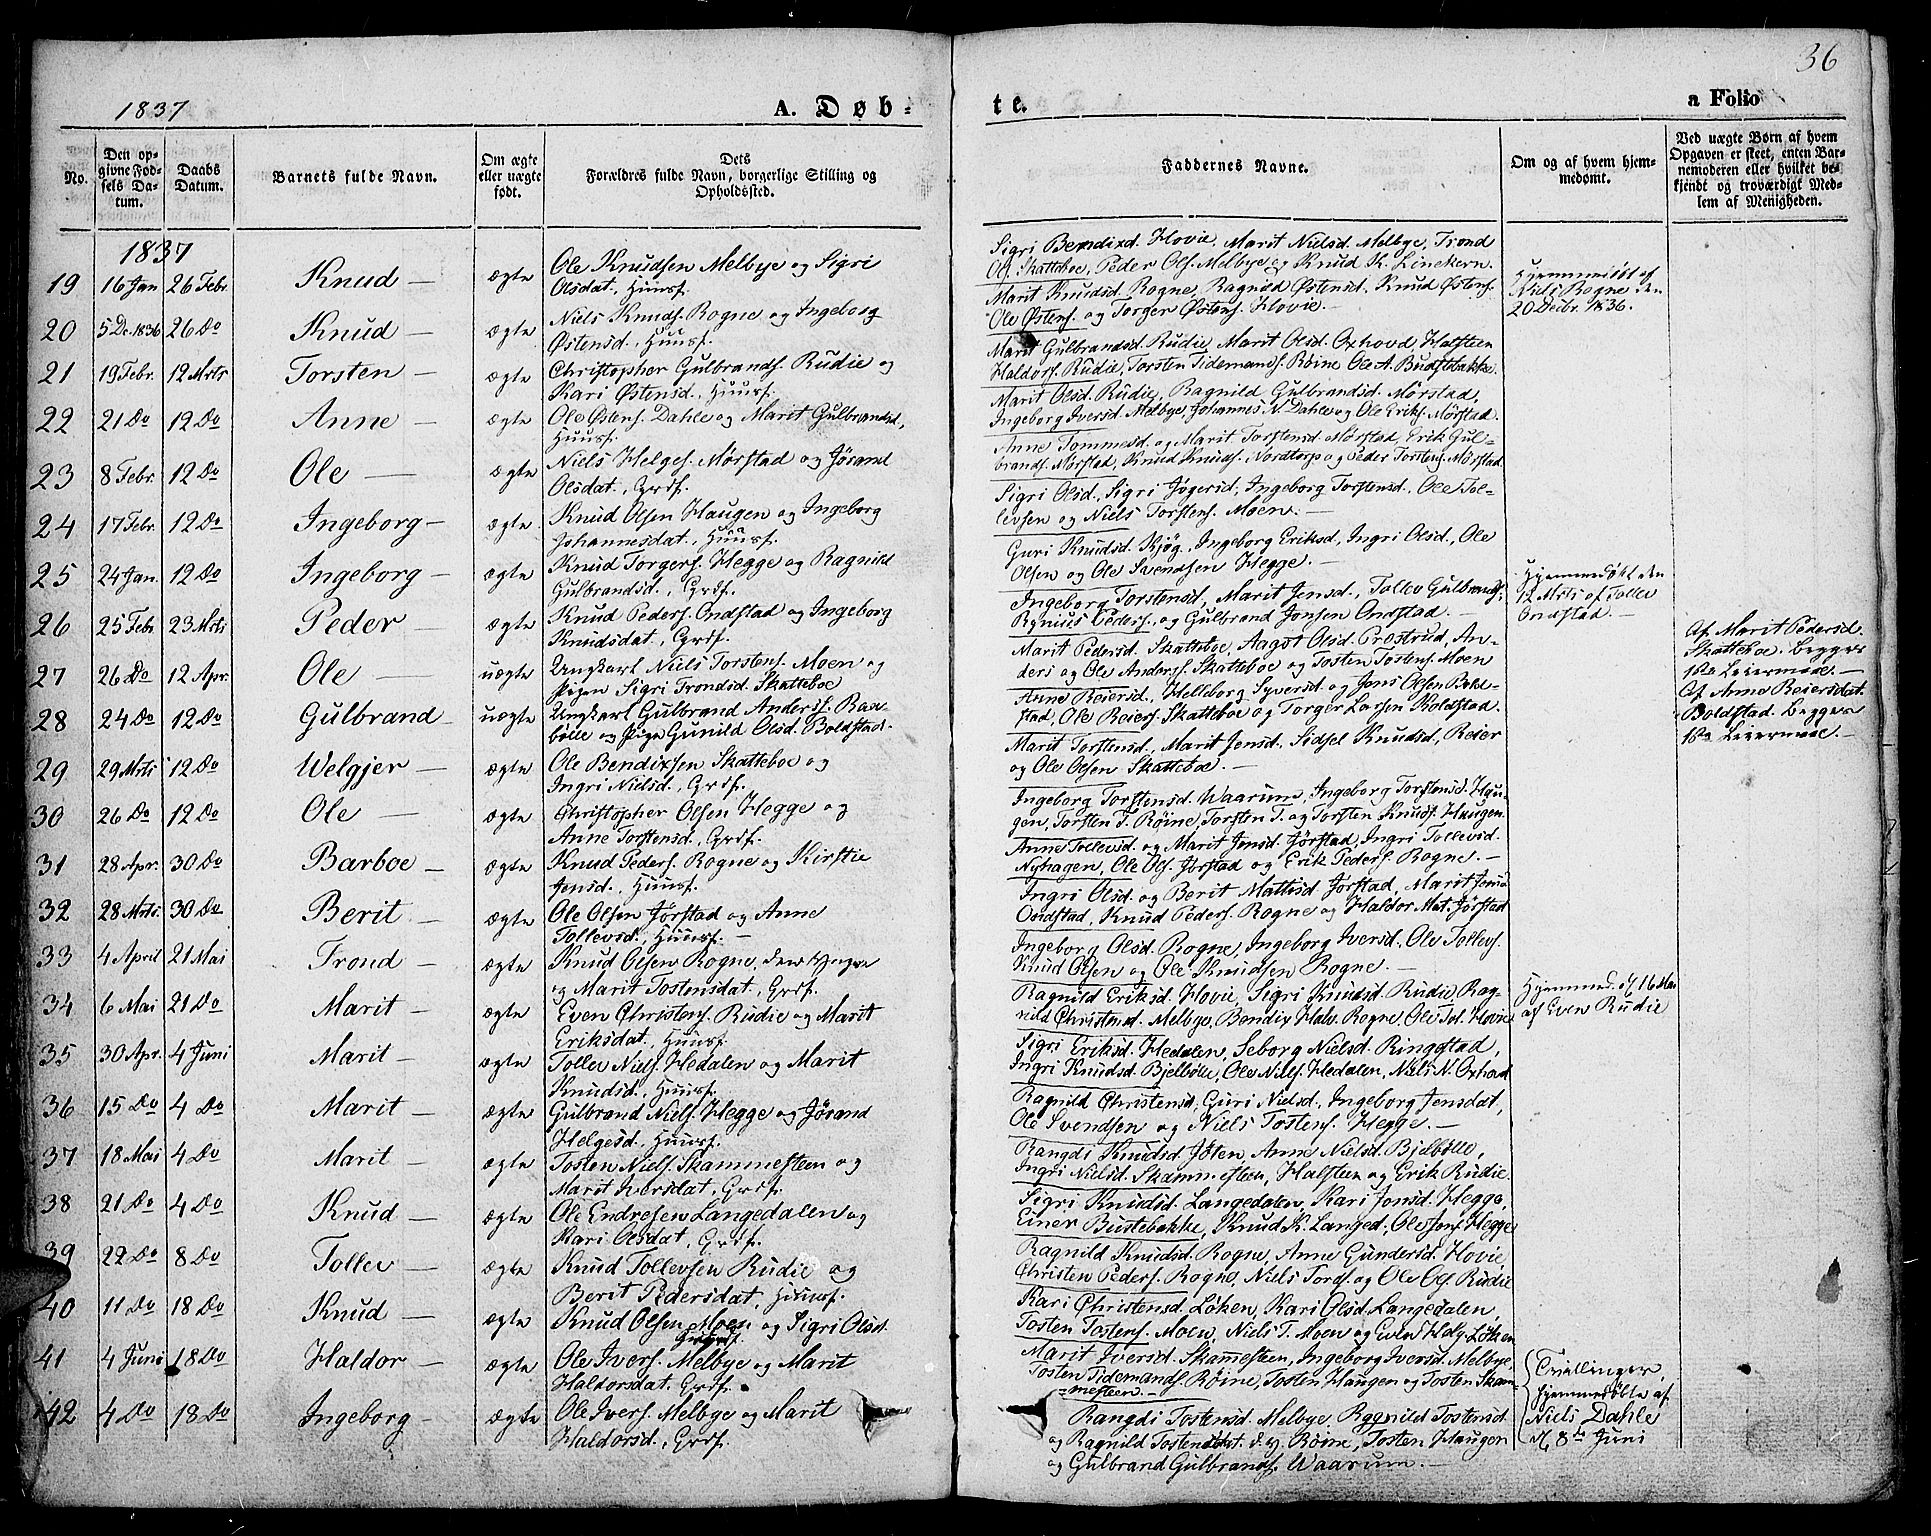 36
1837
A. Døb-
te.
a Folio
No.
Den op-
givne Fød-
sels Da-
tum.
Daabs
Datum.
Barnets fulde Navn.
Om ægte
eller uægte
født.
Dets
Forældres fulde Navn, borgerlige Stilling og
Opholdssted.
Faddernes Navne.
Om og af hvem hjem-
medømt.
Ved uægte Børn af hvem
Opgaven er skeet, enten Bar-
nemoderen eller hvilket be-
kjendt og troværdigt Med-
lem af Menigheden.
1837
19 16 Jan 26 Febr. Knud — ægte
Ole Knudsen Melbye og Sigri
Olsdat., Huusf.
Sigri Bendixd. Hovie, Marit Nielsd. Melbye, Trond
Ols. Skatteboe, Peder Ols. Melbye og Knud K. Linekern.
20 5 De. 1836 26 Do Knud — ægte
Niels Knuds. Rogne og Ingeborg
Østensd., Huusf.
Marit Knudsd. Rogne, Ragnild Østensd. Knud Østens.
Ole Østens. og Torger Østens. Hovie. —
Hjemmedøbt af
Niels Rogne den
20 Decbr. 1836.
21 19 Febr. 12 Mrts Torsten — ægte
Christopher Gulbrands. Rudie og
Kari Østensd., Huusf.
Marit Gulbrandsd. Rudie, Marit Olsd. Oxhovd Halsteen
Haldors. Rudie, Torsten Tidemands. Røine, Ole A. Budstebakke.
22 21 Do 12 Do Anne — ægte
Ole Østens. Dahle og Marit Gulbrandsd.,
Huusf.
Marit Olsd. Rudie, Ragnild Gulbrandsd. Mørstad,
Ingeborg Iversd. Melbye, Johannes N. Dahle og Ole Eriks. Mørstad.
23 8 Febr. 12 Do Ole — ægte
Niels Helges. Mørstad og Jørand
Olsdat., Grdf.
Anne Tommesd. og Marit Torstensd. Mørstad, Erik Gul-
brands. Mørstad, Knud Knuds. Nordtorp og Peder Torstens. Mørstad
24 17 Febr. 12 Do Ingeborg — ægte
Knud Olsen Haugen og Ingeborg
Johannesdat., Huusf.
Sigri Olsd., Sigri Jøgersd., Ingeborg Torstensd., Ole Tol-
levsen og Niels Torstens. Moen. —
25 24 Jan. 12 Do Ingeborg — ægte
Knud Torgers. Hegge og Ragnild
Gulbrandsd., Grdf.
Guri Knudsd. Kjøg, Ingeborg Eriksd., Ingri Olsd., Ole
Olsen og Ole Svendsen Hegge. —
26 25 Febr. 23 Mrts Peder — ægte
Knud Peders. Ondstad og Ingeborg
Knudsdat., Grdf.
Ingeborg Torstensd., Marit Jensd., Tollev Gulbrands.
Rgnius Peders. og Gulbrand Jonsen Ondstad.
Hjemmedøbt den
12 Mrts af Tollev
Ondstad. —
27 26 Do 12 Apr. Ole — uægte
Ungkarl Niels Torstens. Moen og
Pigen Sigri Trondsd. Skatteboe
Marit Pedersd. Skatteboe, Aagot Olsd. Prøstrud, An-
ders og Ole Anders. Skatteboe og Tosten Tostens. Moen
Af Marit Pedersd.
Skatteboe. Begges
1ste Leiermaae. —
28 24 Do 12 Do Gulbrand — uægte
Ungkarl Gulbrand Anders. Rax-
bølle og Pige Gunild Olsd. Boldstad.
Anne Reiersd., Helleborg Syversd. og Jens Olsen Bold-
stad, Ole Reiers. Skatteboe og Torger Larsen Boldstad.
Af Anne Reiersdat.
Boldstad. Begges
1ste Leiermaae. —
29 29 Mrts 12 Do Welgjer — ægte
Ole Bendixsen Skatteboe og
Ingri Nielsd., Grdf.
Marit Torstensd., Marit Jensd., Sidsel Knudsd., Reier
og Ole Olsen Skatteboe. —
30 26 Do 12 Do Ole — ægte
Christopher Olsen Hegge og
Anne Torstensd., Grdf.
Ingeborg Torstensd. Waarum, Ingeborg Torstensd. Hau-
gen, Torsten T. Røine, Torsten T. og Torsten Knuds. Haugen.
31 28 Apr. 30 Do Barboe — ægte
Knud Peders. Rogne og Kirstie
Jensd., Huusf.
Anne Tollevsd. og Marit Jensd. Jørstad, Ingri Tollevsd.
Nyhagen, Ole Ols. Jørstad og Erik Peders. Rogne. —
32 28 Mrts. 30 Do Berit — ægte
Ole Olsen Jørstad og Anne
Tollevsd., Huusf. —
Ingri Olsd. og Berit Mattisd. Jørstad, Marit Jensd.
Ondstad, Knud Peders. Rogne og Haldor Mat. Jørstad
33 4 April 21 Mai Trond — ægte
Knud Olsen Rogne, den Yngre
og Marit Tostensdat., Grdf.
Ingeborg Olsd. Rogne, Ingeborg Iversd., Ole Tollevs.
Knud Olsen og Ole Knudsen Rogne. —
34 6 Mai 21 Do Marit — ægte
Even Christens. Rudie og Marit
Eriksdat., Huusf.
Ragnild Eriksd. Hovie, Sigri Knudsd. Rudie, Rag-
nild Christensd. Melbye, Bendix Halv. Rogne, Ole Tol. Hovie
Hjemmed. d. 16 Mai
af Even Rudie
35 30 Apr. 4 Juni Marit — ægte
Tollev Niels. Hedalen og Marit
Knudsd., Huusf.
Sigri Eriksd. Hedalen, Seborg Nielsd. Ringestad,
Ingri Knudsd. Bjelbøle, Ole Niels. Hedalen, Niels N. Oxhovd
36 15 Do 4 Do Marit — ægte
Gulbrand Niels. Hegge og Jørand
Helgesd., Huusf.
Ragnild Christensd., Guri Nielsd., Ingeborg Jensdat,
Ole Svendsen og Niels Tostens. Hegge. —
37 18 Mai 4 Do Marit — ægte
Tosten Niels. Skammesteen og
Marit Iversdat., Grdf.
Rangdi Knudsd. Jøten, Anne Nielsd. Bjelbølle,
Ingri Nielsd. Skammesteen, Halsteen og Erik Rudie.
38 21 Do 4 Do Knud — ægte
Ole Endresen Langedalen og
Kari Olsdat., Grdf.
Sigri Knudsd. Langedalen, Kari Jonsd. Hegge,
Einer Bustebakke, Knud K. Langed., Ole Jens. Hegge
39 22 Do 8 Do Tollev — ægte
Knud Tollevsen Rudie og
Berit Pedersdat., Huusf.
Ragnild Knudsd. Rogne, Anne Gundersd. Hovie,
Christen Peders. Rogne, Niels Tords. og Ole Ols. Rudie
40 11 Do 18 Do Knud — ægte
Knud Olsen Moen og Sigri Olsd.
Kari Christensd. Løken, Kari Olsd. Langedalen,
Tosten Tostens. Moen, Niels T. Moen og Even Halv. Løken
41 4 Juni 18 Do Haldor — ægte
Ole Ivers. Melbye og Marit
Haldorsdat. Grdf.
Marit Iversd. Skammesteen, Ingeborg Iversd. Melbye,
Tosten Tidemands. Røine, Tosten Haugen og Tosten Skam-
mesteen. —
42 4 Do 18 Do Ingeborg — ægte
Ole Ivers. Melbye og Marit
Haldorsd., Grdf.
Rangdi Tostensd. Melbye, Ragnild Tostensd.
og Ragnild Tostensdat. d. y. Røine, Tosten Haugen
og Gulbrand Gulbrands. Waarum. —
Tvillinger,
hjemmedøbte af
Niels Dahle
d. 8de Juni